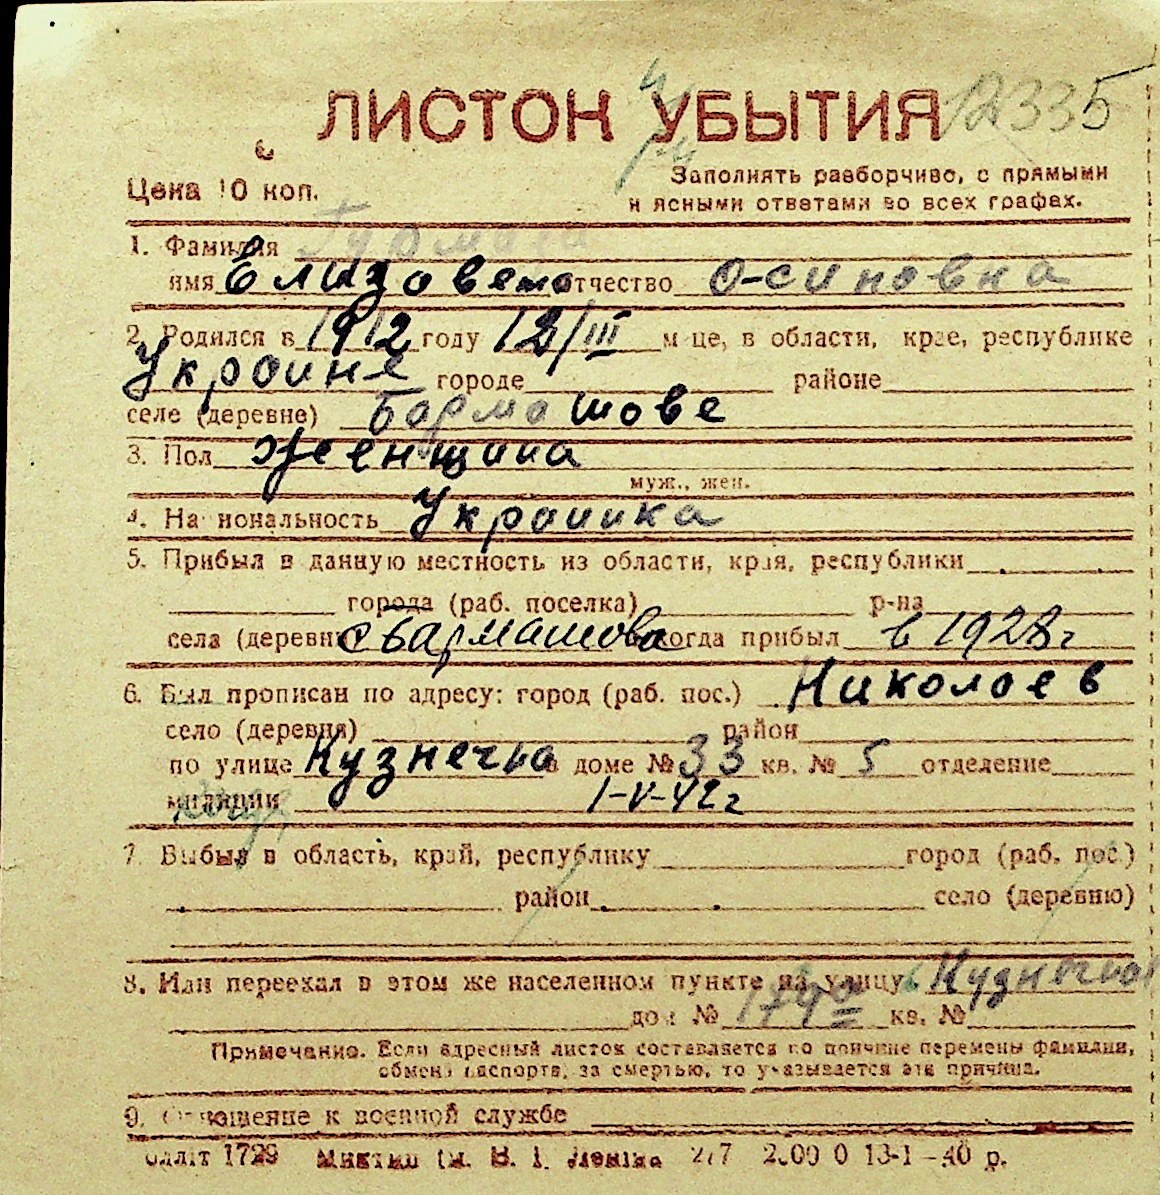 12335
ЛИСТОК УБЫТИЯ
Цена 10 коп.
Заполнять разборчиво, с прямыми
и ясными ответами во всех графах.
1. Фамилия
имя Елизавета отчество Осиповна
2. Родился в 1912 году 13/III м-це, в области, крае, республике
Украине городе районе
селе (деревне) Бармашове
3. Пол Женщина
муж., жен.
4. Национальность Украинка
5. Прибыл в данную местность из области, края, республики
города (раб. поселка) р-на
села (деревни) с Бармашова когда прибыл в 1928 г
6. Был прописан по адресу: город (раб. пос.) Николаев
село (деревня) район
по улице Кузнечна в доме № 33 кв. № 5 отделение
милиции 1-V-42 г
7. Выбыл в область, край, республику город (раб. пос.)
район село (деревню)
8. Или переехал в этом же населенном пункте на улицу Кузнечная
дом № кв. №
Примечание. Если адресный листок составляется по причине перемены фамилии,
обмена паспорта, за смертью, то указывается эта причина.
9. Отношение к военной службе
1729 В. І. Леніна 277 13-1-40 р.